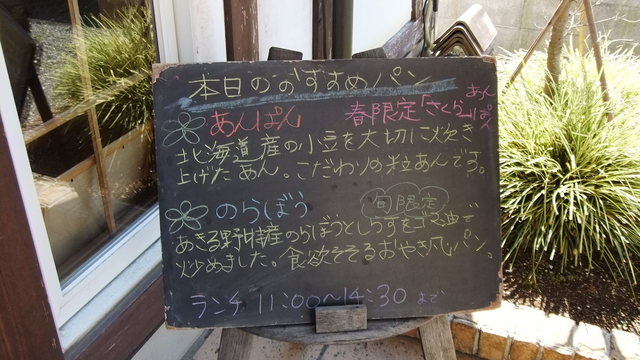 本日のおすすめパン
あんぱん 春限定「さくら」あんぱん
北海道産の小豆を大切に炊き
上げたあん。こだわりの粒あんです。
のらぼう 旬限定
あきる野特産のらぼうとしらすをゴマ油で
炒めました。食欲そそるおやき風パン。
ランチ 11:00〜14:30 まで